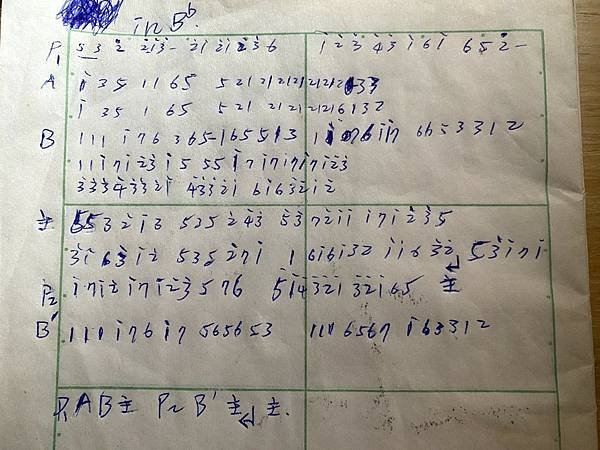 in B♭
P₁ 5 3 2̇ 2̇1̇3̇- 2̇1̇ 2̇1̇2̇3̇6 1̇ 2̇ 3̇ 4̇3̇ 1̇61̇ 652̇-
A 1̇ 35 11 65 521 21212121
1̇ 35 1 65 521 2121216132
B 111 1̇76 365-165513 6653312
1171̇2̇3̇1̇5 551̇71̇71̇71̇71̇2̇3̇
3̇3̇3̇4̇3̇3̇2̇1̇ 4̇3̇3̇2̇1̇ 61̇632̇1̇2̇
主 5532̇1̇6 5352̇4̇3̇ 53721̇1̇ 1̇71̇2̇3̇5
3̇1̇63̇1̇2̇ 5352̇71̇ 1 61̇61̇3̇2̇ 1̇1̇63̇2̇ 531̇71̇
P₂ 1̇71̇2̇ 1̇71̇2̇3̇576 51̇4̇3̇2̇1̇3̇2̇1̇65 主
B' 1111̇761̇7 565653 1116567 1̇63312
P₁ A B 主 P₂ B' 主 主.